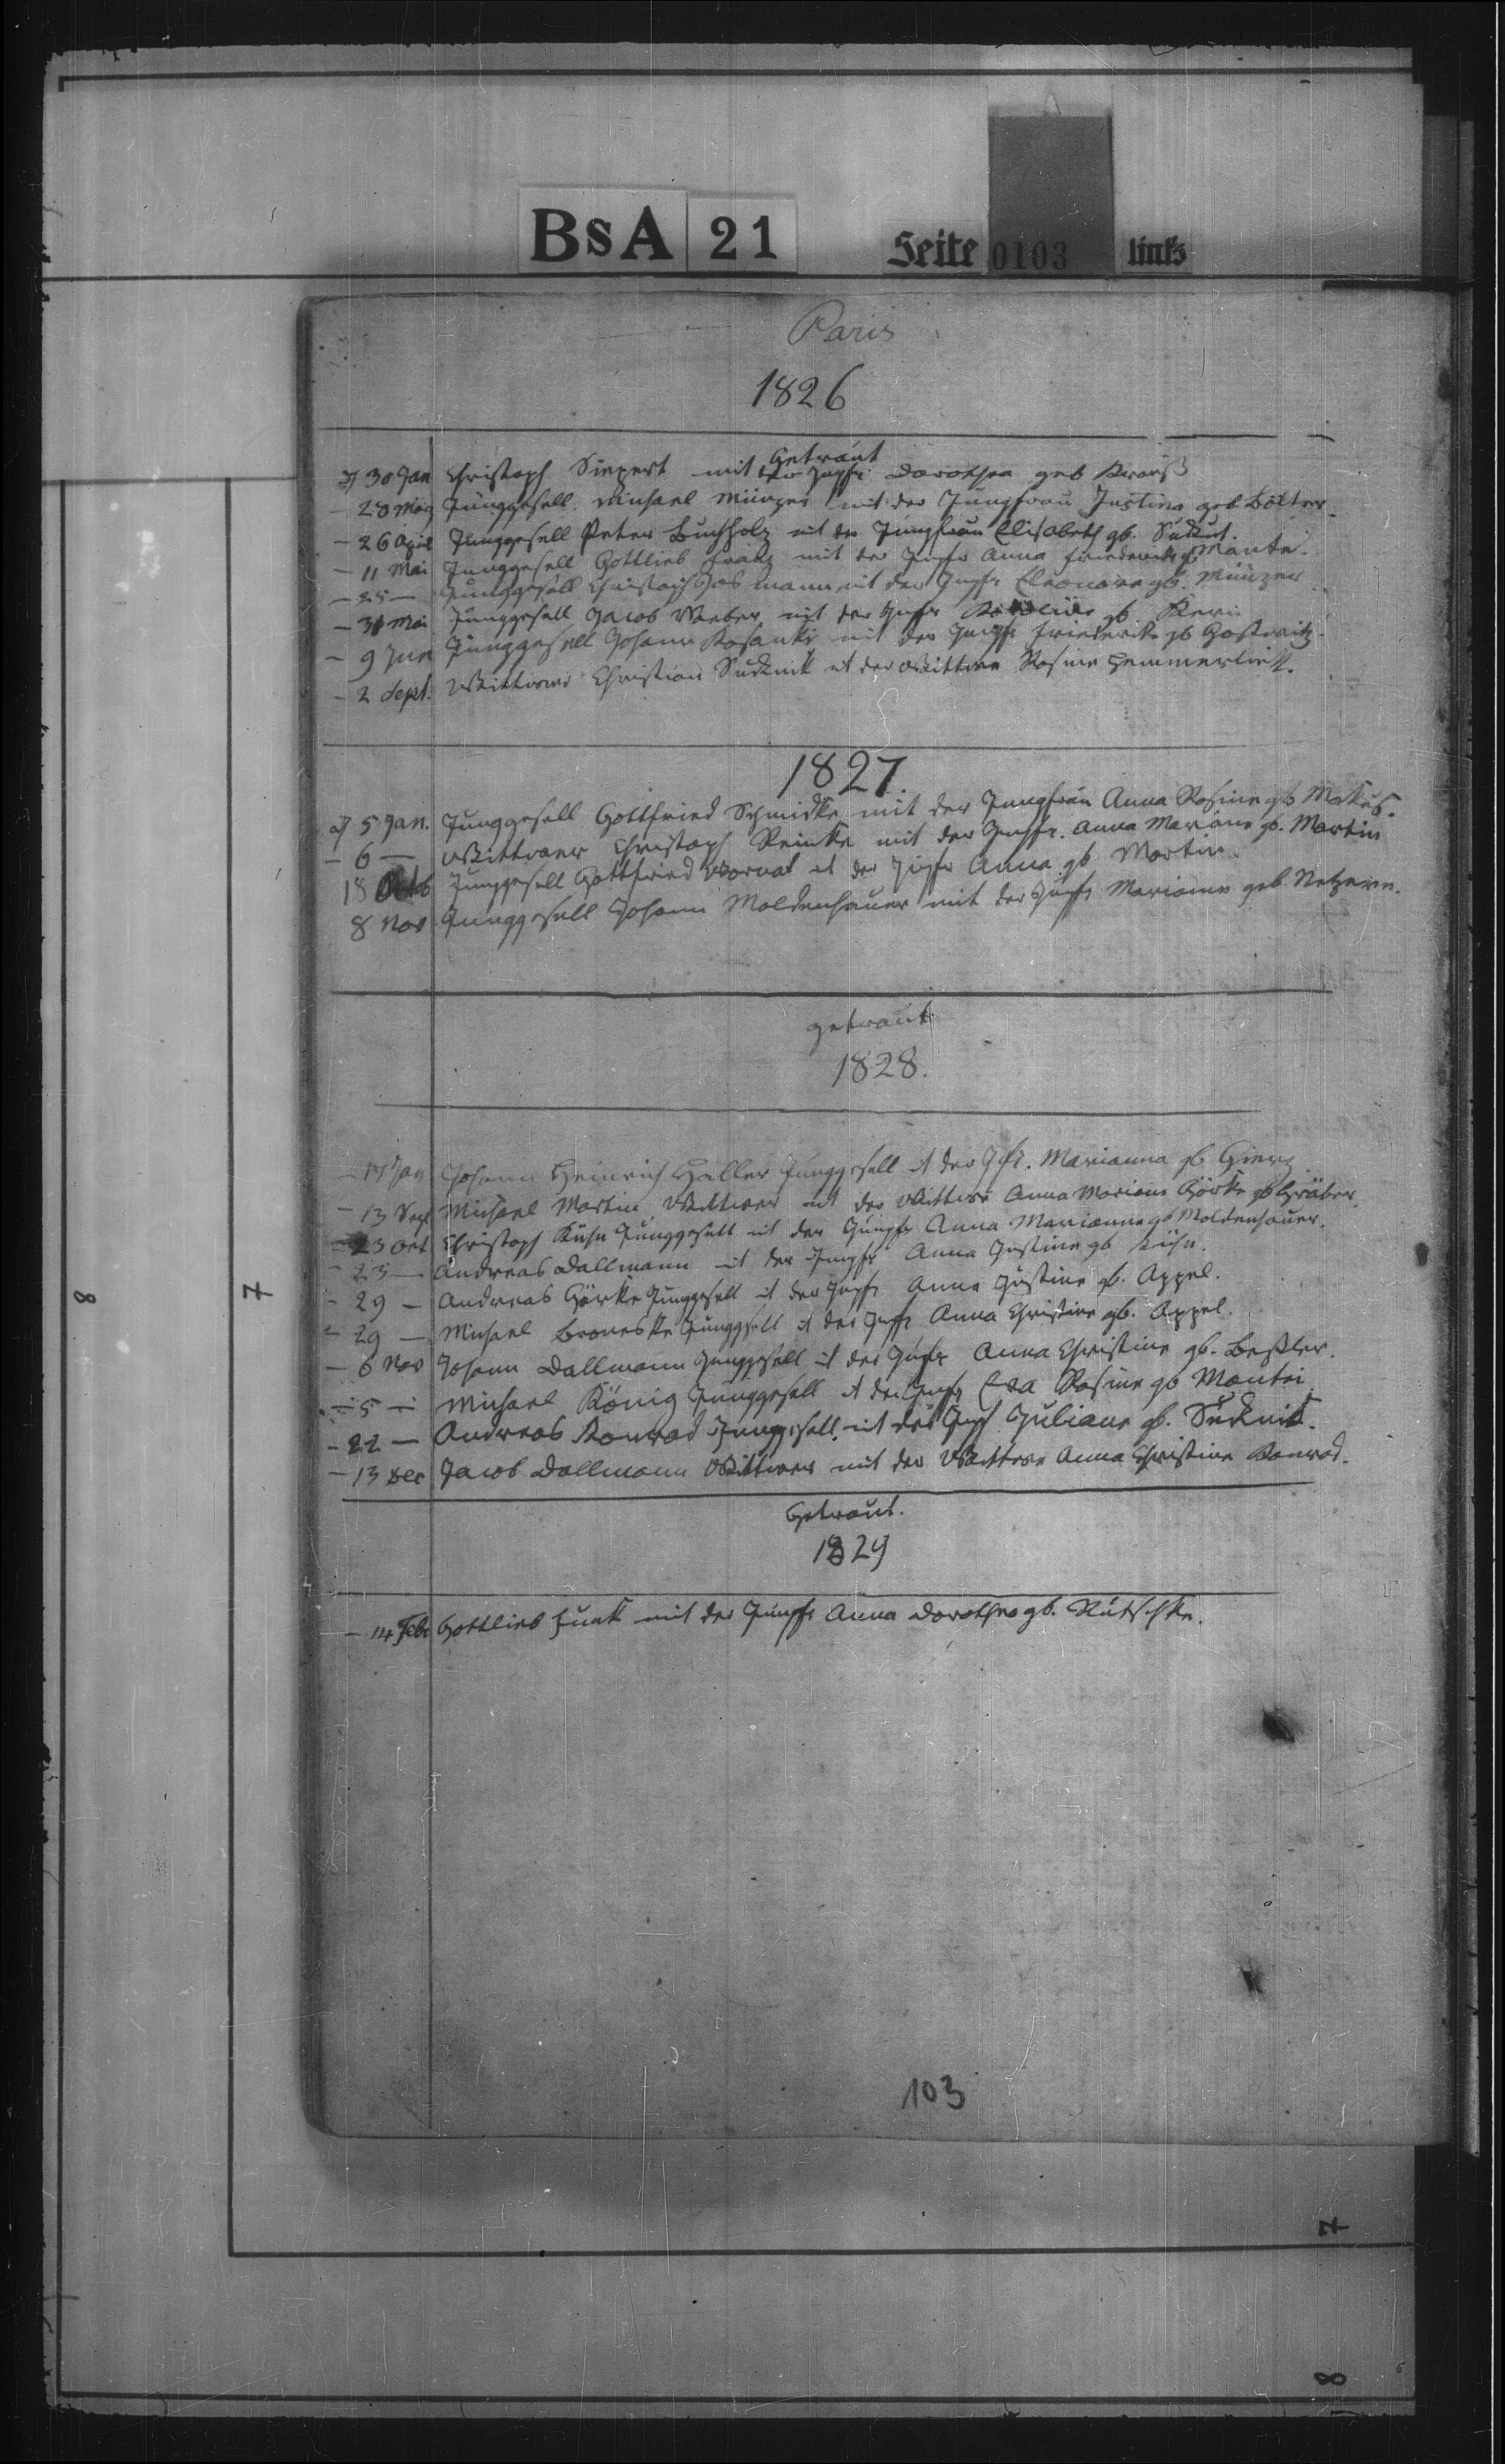 BsA 21 Seite 0103 links
Paris
1826
Getraut
d 30 Jan Christoph Siepert mit der Jgfr Dorothea geb Krauß
- 28 März Junggesell Michael Münzer mit der Jungfrau Justina geb. Bölter
- 26 April Junggesell Peter Buchholz mit der Jungfrau Elisabeth gb. Sukut.
- 11 Mai Junggesell Gottlieb Franz mit der Jgfr Anna Friederike gb Mantei
- 25 - Junggesell Christoph mit der Jgfr Eleonore gb. Münzer
- 31 Mai Junggesell Jacob Weeber mit der Jgfr gb.
- 9 Jun Junggesell Johann Rosanke mit der Jungfr Friederike gb
- 2 Sept. Wittwer Christian Sucknit mit der Wittwe Rosine Hemmerlich.
1827.
d 5 Jan. Junggesell Gottfried Schmidke mit der Jungfrau Anna Rosine gb Markus.
- 6 - Wittwer Christoph Reincke mit der Jungfr. Anna Mariane gb. Martin
18 Octob Junggesell Gottfried Wornat mit der Jgfr Anna gb Martin
8 Nov Junggesell Johann Moldenhauer mit der Jungfr Mariane geb
getraut
1828.
- 17 Jan Johann Heinrich Haller Junggesell mit der Jgfr. Marianna gb Gierz
- 13 Sept Michael Martin Wittwer mit der Wittwe Anna Mariane Görke gb Gräber
- 23 Oct Christoph Kühn Junggesell mit der Jungfr Anna Marianna gb Moldenhauer.
- 23 - Andreas Dallmann mit der Jungfr Anna Justine gb Kühn.
- 29 - Andreas Görke Junggesell mit der Jgfr Anna Justine gb. Appel.
- 29 - Michael Broneske Junggesell mit der Jgfr Anna Christine gb. Appel.
- 6 Nov Johann Dallmann Junggesell mit der Jgfr Anna Christine gb. Beßler.
- 5 - Michael König Junggesell mit der Jgfr Eva Rosine gb Mantei
- 22 - Andreas Konrad Junggesell mit der Jgf Juliane gb. Sucknit.
- 13 Dec Jacob Dallmann Wittwer mit der Wittwe Anna Christine Konrad.
Getraut.
1829
- 14 Febr Gottlieb Funk mit der Jungfr Anna Dorothea gb. Rutschke.
103
7
8
7
8